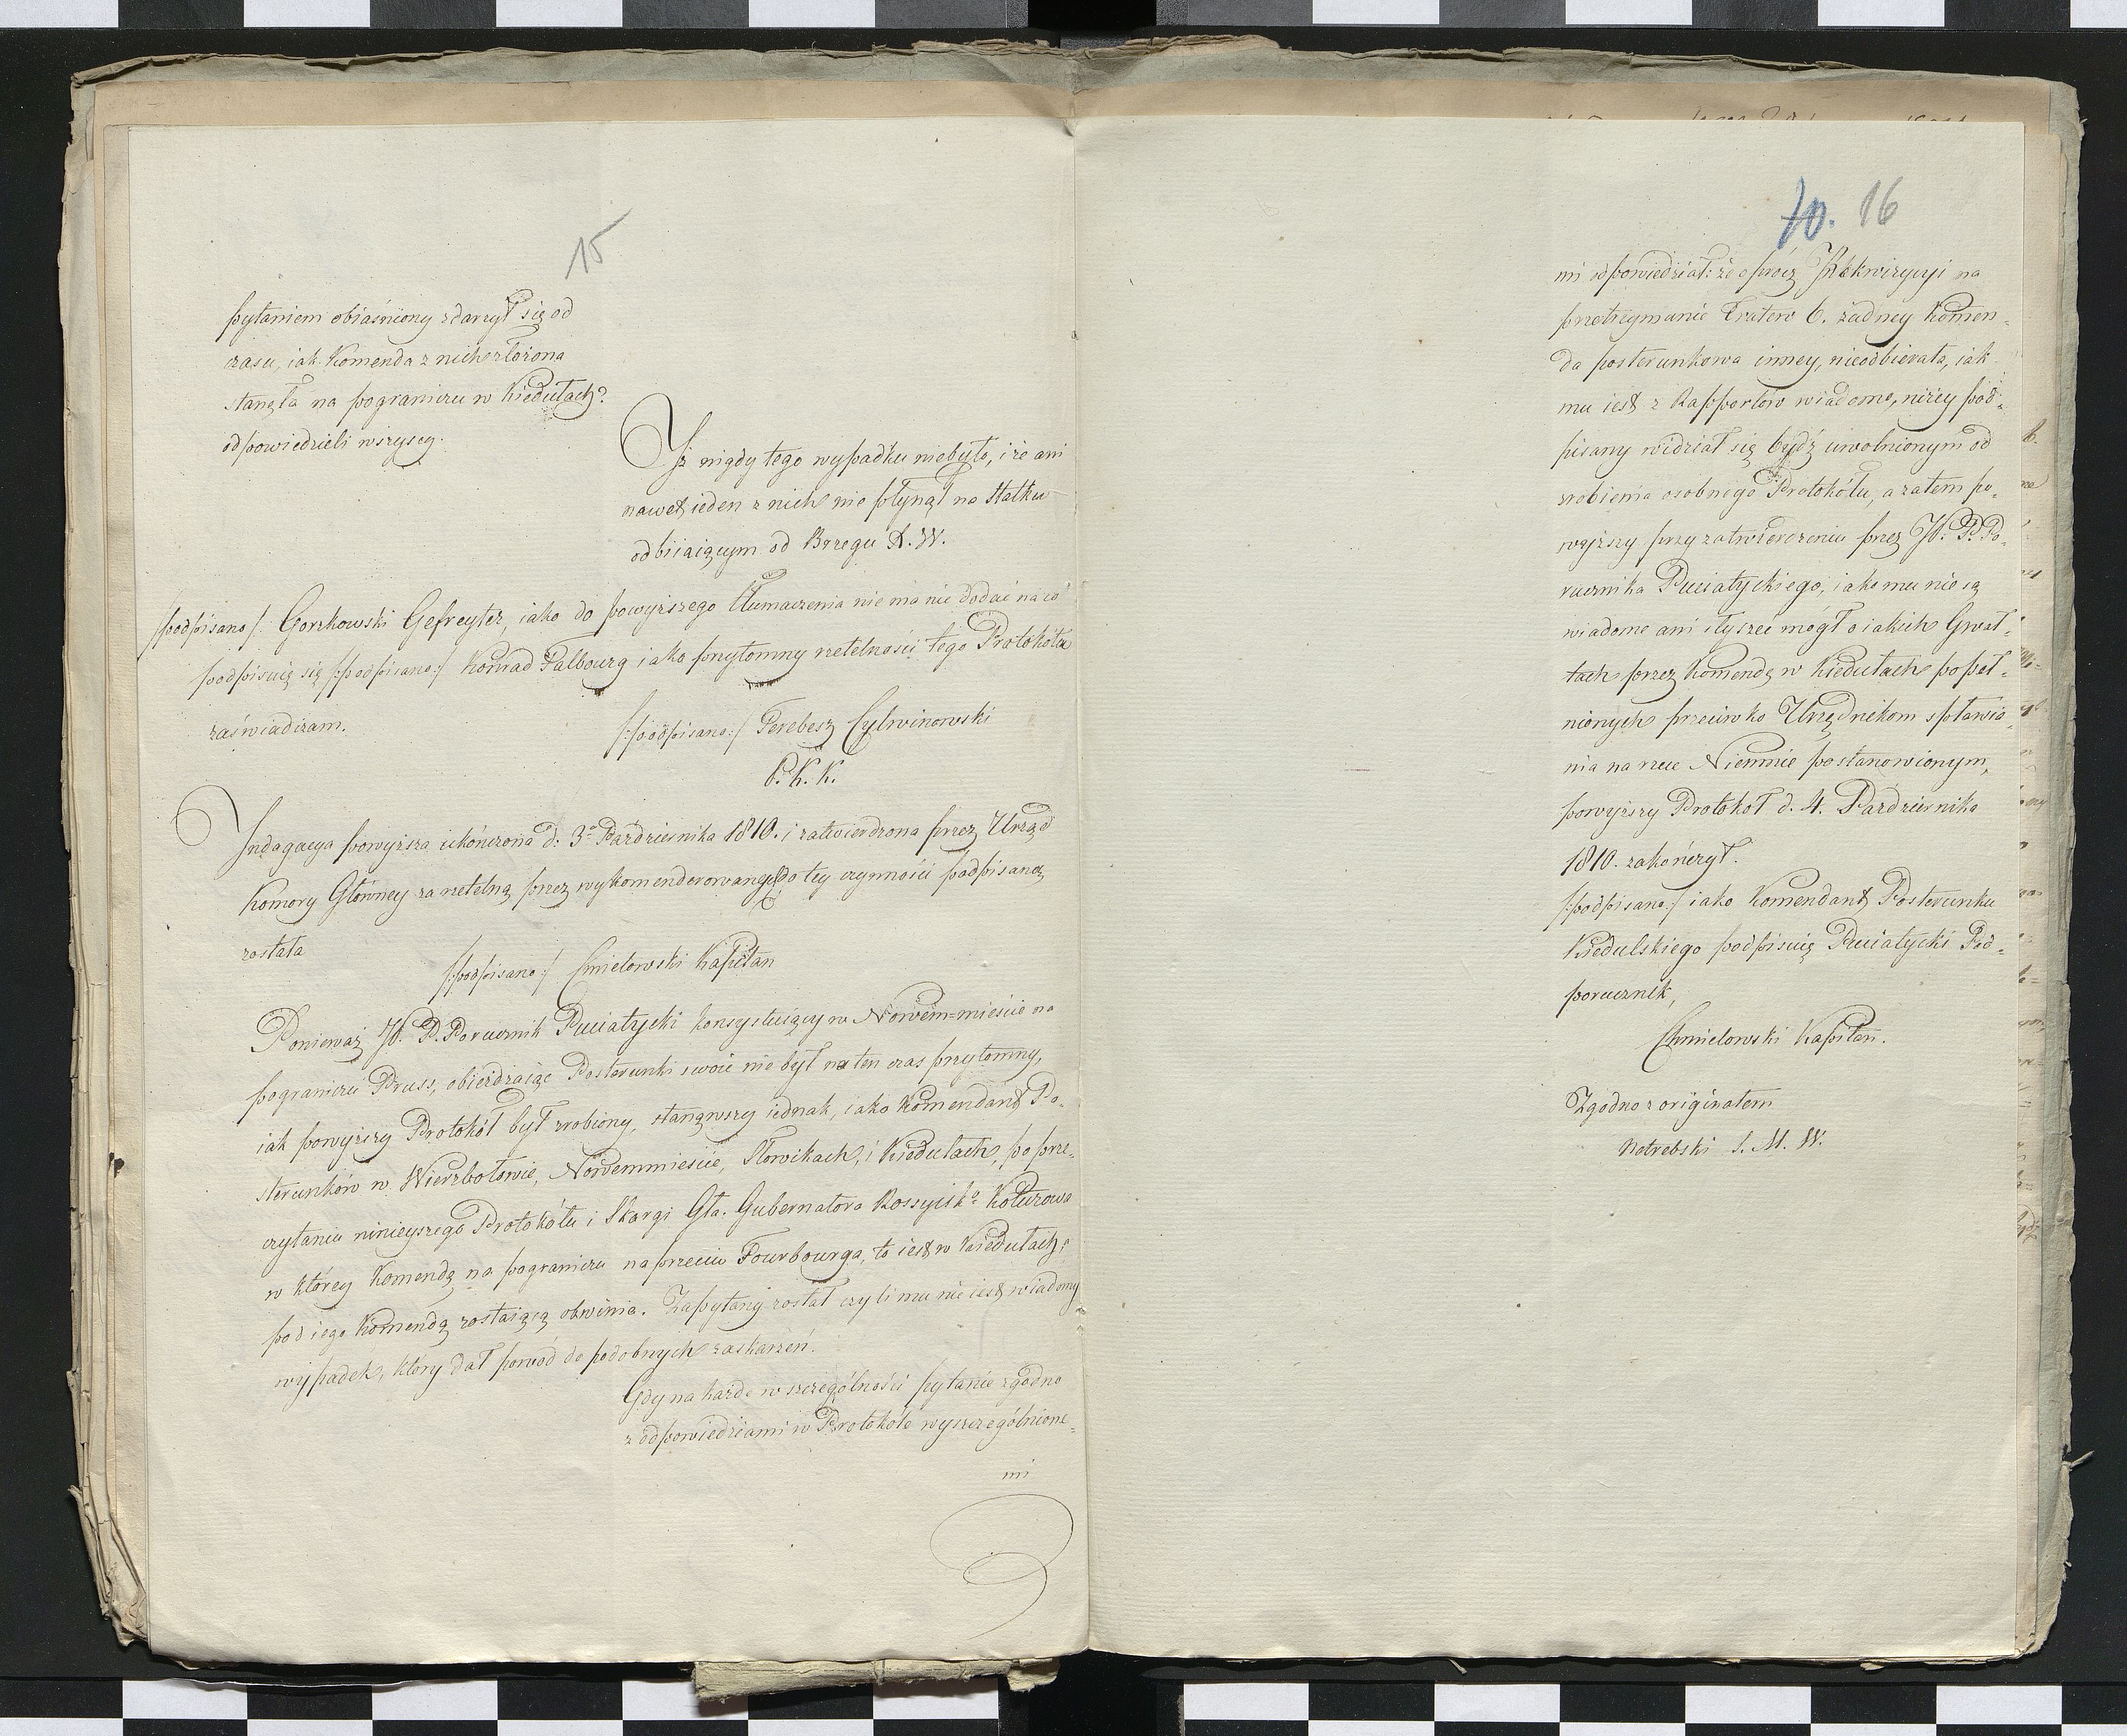 15
pytaniem obiaśniony zdarzył się od
czasu, iak Komenda z nich złożona
stanęła na pograniczu w Kiedułach?
odpowiedzieli wszyscy.
Iż nigdy tego wypadku niebyło, i że ani
nawet ieden z nich nie płynął na Statku
odbiiaiącym od Brzegu X. W.
/:podpisano:/ Gorzkowski Gefreyter, iako do powyższego tłumaczenia nie ma nic dodać na co
podpisuię się /:podpisano:/ Konrad Falbourg iako przytomny rzetelności tego Protokółu
zaświadczam.
/:podpisano:/ Ferebesz Cylwinowski
P. K. K.
Indagacya powyższa ukończona d: 3º Października 1810. i zatwierdzona przez Urząd
Komory Główney za rzetelną przez wykomenderowanego do tey czynności podpisaną
została
/:podpisano:/ Cmielowski Kapitan
Ponieważ JP. P. Porucznik Puciatycki konsystuiący w Nowém-mieście na
pograniczu Pruss, obieżdzaiąc Posterunki swoie nie był na ten czas przytomny,
iak powyższy Protokół był zrobiony, stanąwszy iednak, iako Komendant Po-
sterunków w Wierzbołowie, Nowemmieście, Słowikach, i Kiedułach, po prze-
czytaniu ninieyszego Protokółu i Skargi Gła. Gubernatora Rossyisko Koturowa
w którey Komendę na pograniczu naprzeciw Fourbourga, to iest w Kiedułach;
pod iego Komendą zostaiącą obwinia. Zapytany został czyli mu nie iest wiadomy
wypadek, który dał powód do podobnych zaskarżeń.
Gdy na każde w szczególności pytanie zgodno
z odpowiedziami w Protokóle wyszczególnione-
mi
70. 16
mi odpowiedział: że oprócz Rekwizycyi na
przetrzymanie Tratew 6. żadney Komen-
da posterunkowa inney, nieodbierała, iak
mu iest z Rapportów wiadomo, niżey pod-
pisany widział się bydź uwolnionym od
zrobienia osobnego Protokółu, a zatem po-
wyższy przy zatwierdzeniu przez JP. P. Po-
rucznika Puciatyckiego, iako mu nie są
wiadome ani słyszeć mógł o iakich Gwał-
tach przez Komendę w Kiedułach popeł-
nionych przeciwko Urzędnikom spławia-
nia na rzece Niemnie postanowionym,
powyższy Protokół d. 4. Października
1810. zakończył.
/:podpisano:/ iako Komendant Posterunku
Kiedulskiego podpisuię Puciatycki Pod-
porucznik,
Chmielowski Kapitan.
Zgodno z originałem
Notrebski S. M. W.